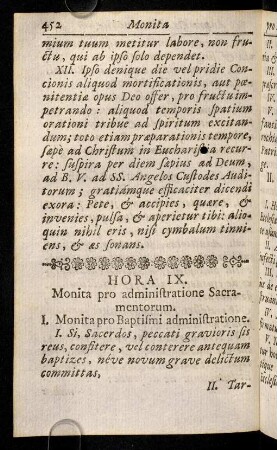 452 Monita
mium tuum metitur labore, non fru-
ctu, qui ab ipso solo dependet.
XII. Ipso denique die vel pridie Con-
cionis aliquod mortificationis, aut pœ-
nitentiæ opus Deo offer, pro fructu im-
petrando: aliquod temporis spatium
orationi tribue ad spiritum excitan-
dum; toto etiam præparationis tempore,
sæpè ad Christum in Eucharistia recur-
re: suspira per diem sæpius ad Deum,
ad B. V. ad SS. Angelos Custodes Audi-
torum; gratiamque efficaciter dicendi
exora: Pete, & accipies, quære, &
invenies, pulsa, & aperietur tibi: alio-
quin nihil eris, nisi cymbalum tinni-
ens, & æs sonans.
HORA IX.
Monita pro administratione Sacra-
mentorum.
I. Monita pro Baptismi administratione.
I. Si, Sacerdos, peccati gravioris sis
reus, confitere, vel conterere antequam
baptizes, néve novum grave delictum
committas,
II. Tar-